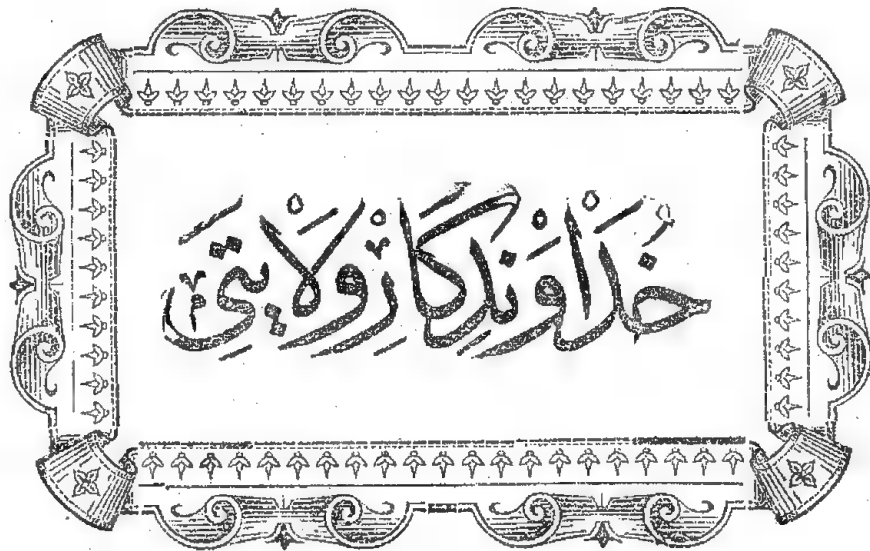 خداوندكار ولايتى